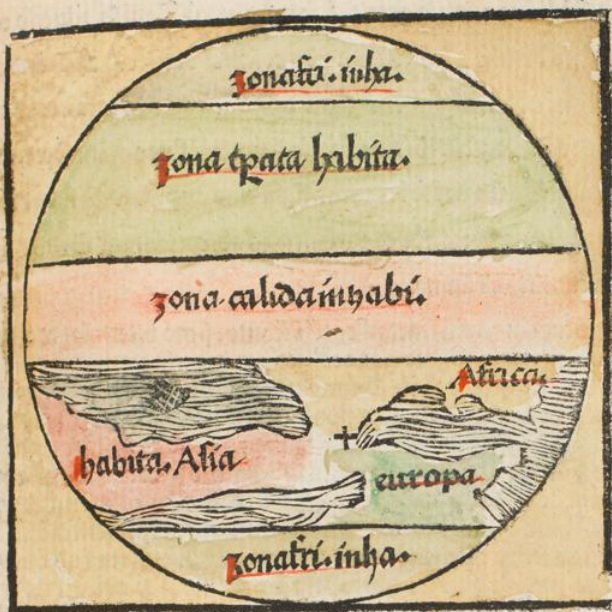 zona fri. inha.
zona tꝑata habita.
zona calida inhabi.
Africa.
habita. Asia
europa
zona fri. inha.